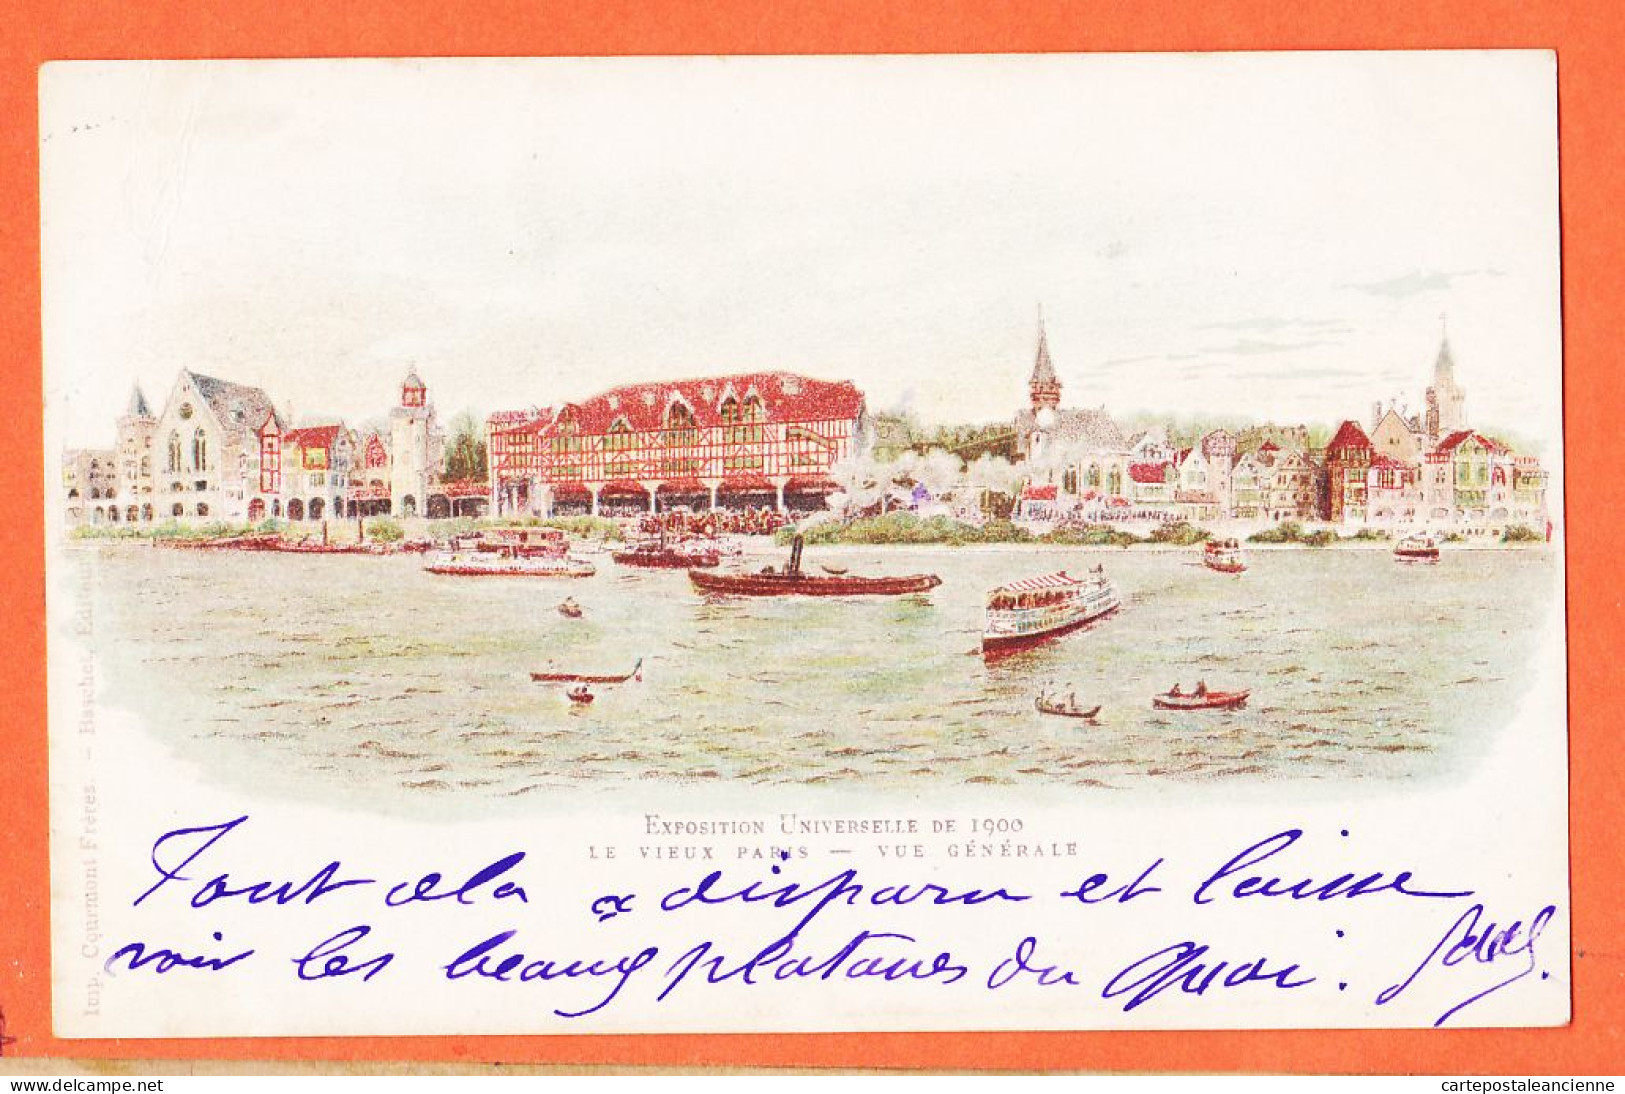 EXPOSITION UNIVERSELLE DE 1900
LE VIEUX PARIS — VUE GÉNÉRALE
Tout cela a disparu et laisse
voir les beaux platanes du Quai.
Imp. Courmont Frères. — Baschet, Editeur
delcampe.net
cartepostaleancienne